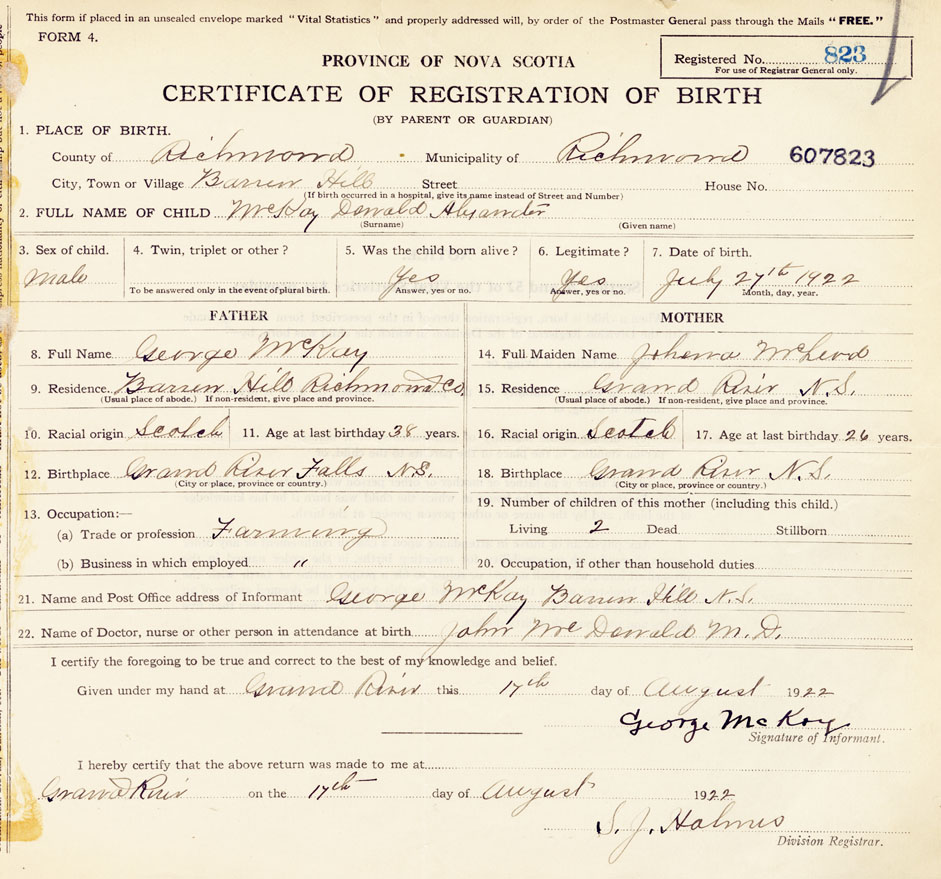 This form if placed in an unsealed envelope marked "Vital Statistics" and properly addressed will, by order of the Postmaster General pass through the Mails "FREE."
FORM 4.
Registered No. 823
For use of Registrar General only.
PROVINCE OF NOVA SCOTIA
CERTIFICATE OF REGISTRATION OF BIRTH
(BY PARENT OR GUARDIAN)
1. PLACE OF BIRTH.
County of Richmond Municipality of Richmond 607823
City, Town or Village Barren Hill Street House No.
(If birth occurred in a hospital, give its name instead of Street and Number)
2. FULL NAME OF CHILD McKay Donald Alexander
(Surname) (Given name)
3. Sex of child. 4. Twin, triplet or other? 5. Was the child born alive? 6. Legitimate? 7. Date of birth.
Male Yes Yes July 27th 1922
To be answered only in the event of plural birth. Answer, yes or no. Answer, yes or no. Month, day, year.
FATHER MOTHER
8. Full Name George McKay 14. Full Maiden Name Johena McLeod
9. Residence. Barren Hill Richmond Co, 15. Residence Grand River N.S.
(Usual place of abode.) If non-resident, give place and province. (Usual place of abode.) If non-resident, give place and province.
10. Racial origin Scotch 11. Age at last birthday 38 years. 16. Racial origin Scotch 17. Age at last birthday 26 years.
12. Birthplace Grand River Falls N.S. 18. Birthplace Grand River N.S.
(City or place, province or country.) (City or place, province or country.)
19. Number of children of this mother (including this child.)
13. Occupation:—
(a) Trade or profession Farming Living 2 Dead Stillborn
(b) Business in which employed " 20. Occupation, if other than household duties
21. Name and Post Office address of Informant George McKay Barren Hill N.S.
22. Name of Doctor, nurse or other person in attendance at birth John McDonald M.D.
I certify the foregoing to be true and correct to the best of my knowledge and belief.
Given under my hand at Grand River this 17th day of August 1922
George McKay
Signature of Informant.
I hereby certify that the above return was made to me at
Grand River on the 17th day of August 1922
S. J. Holmes
Division Registrar.